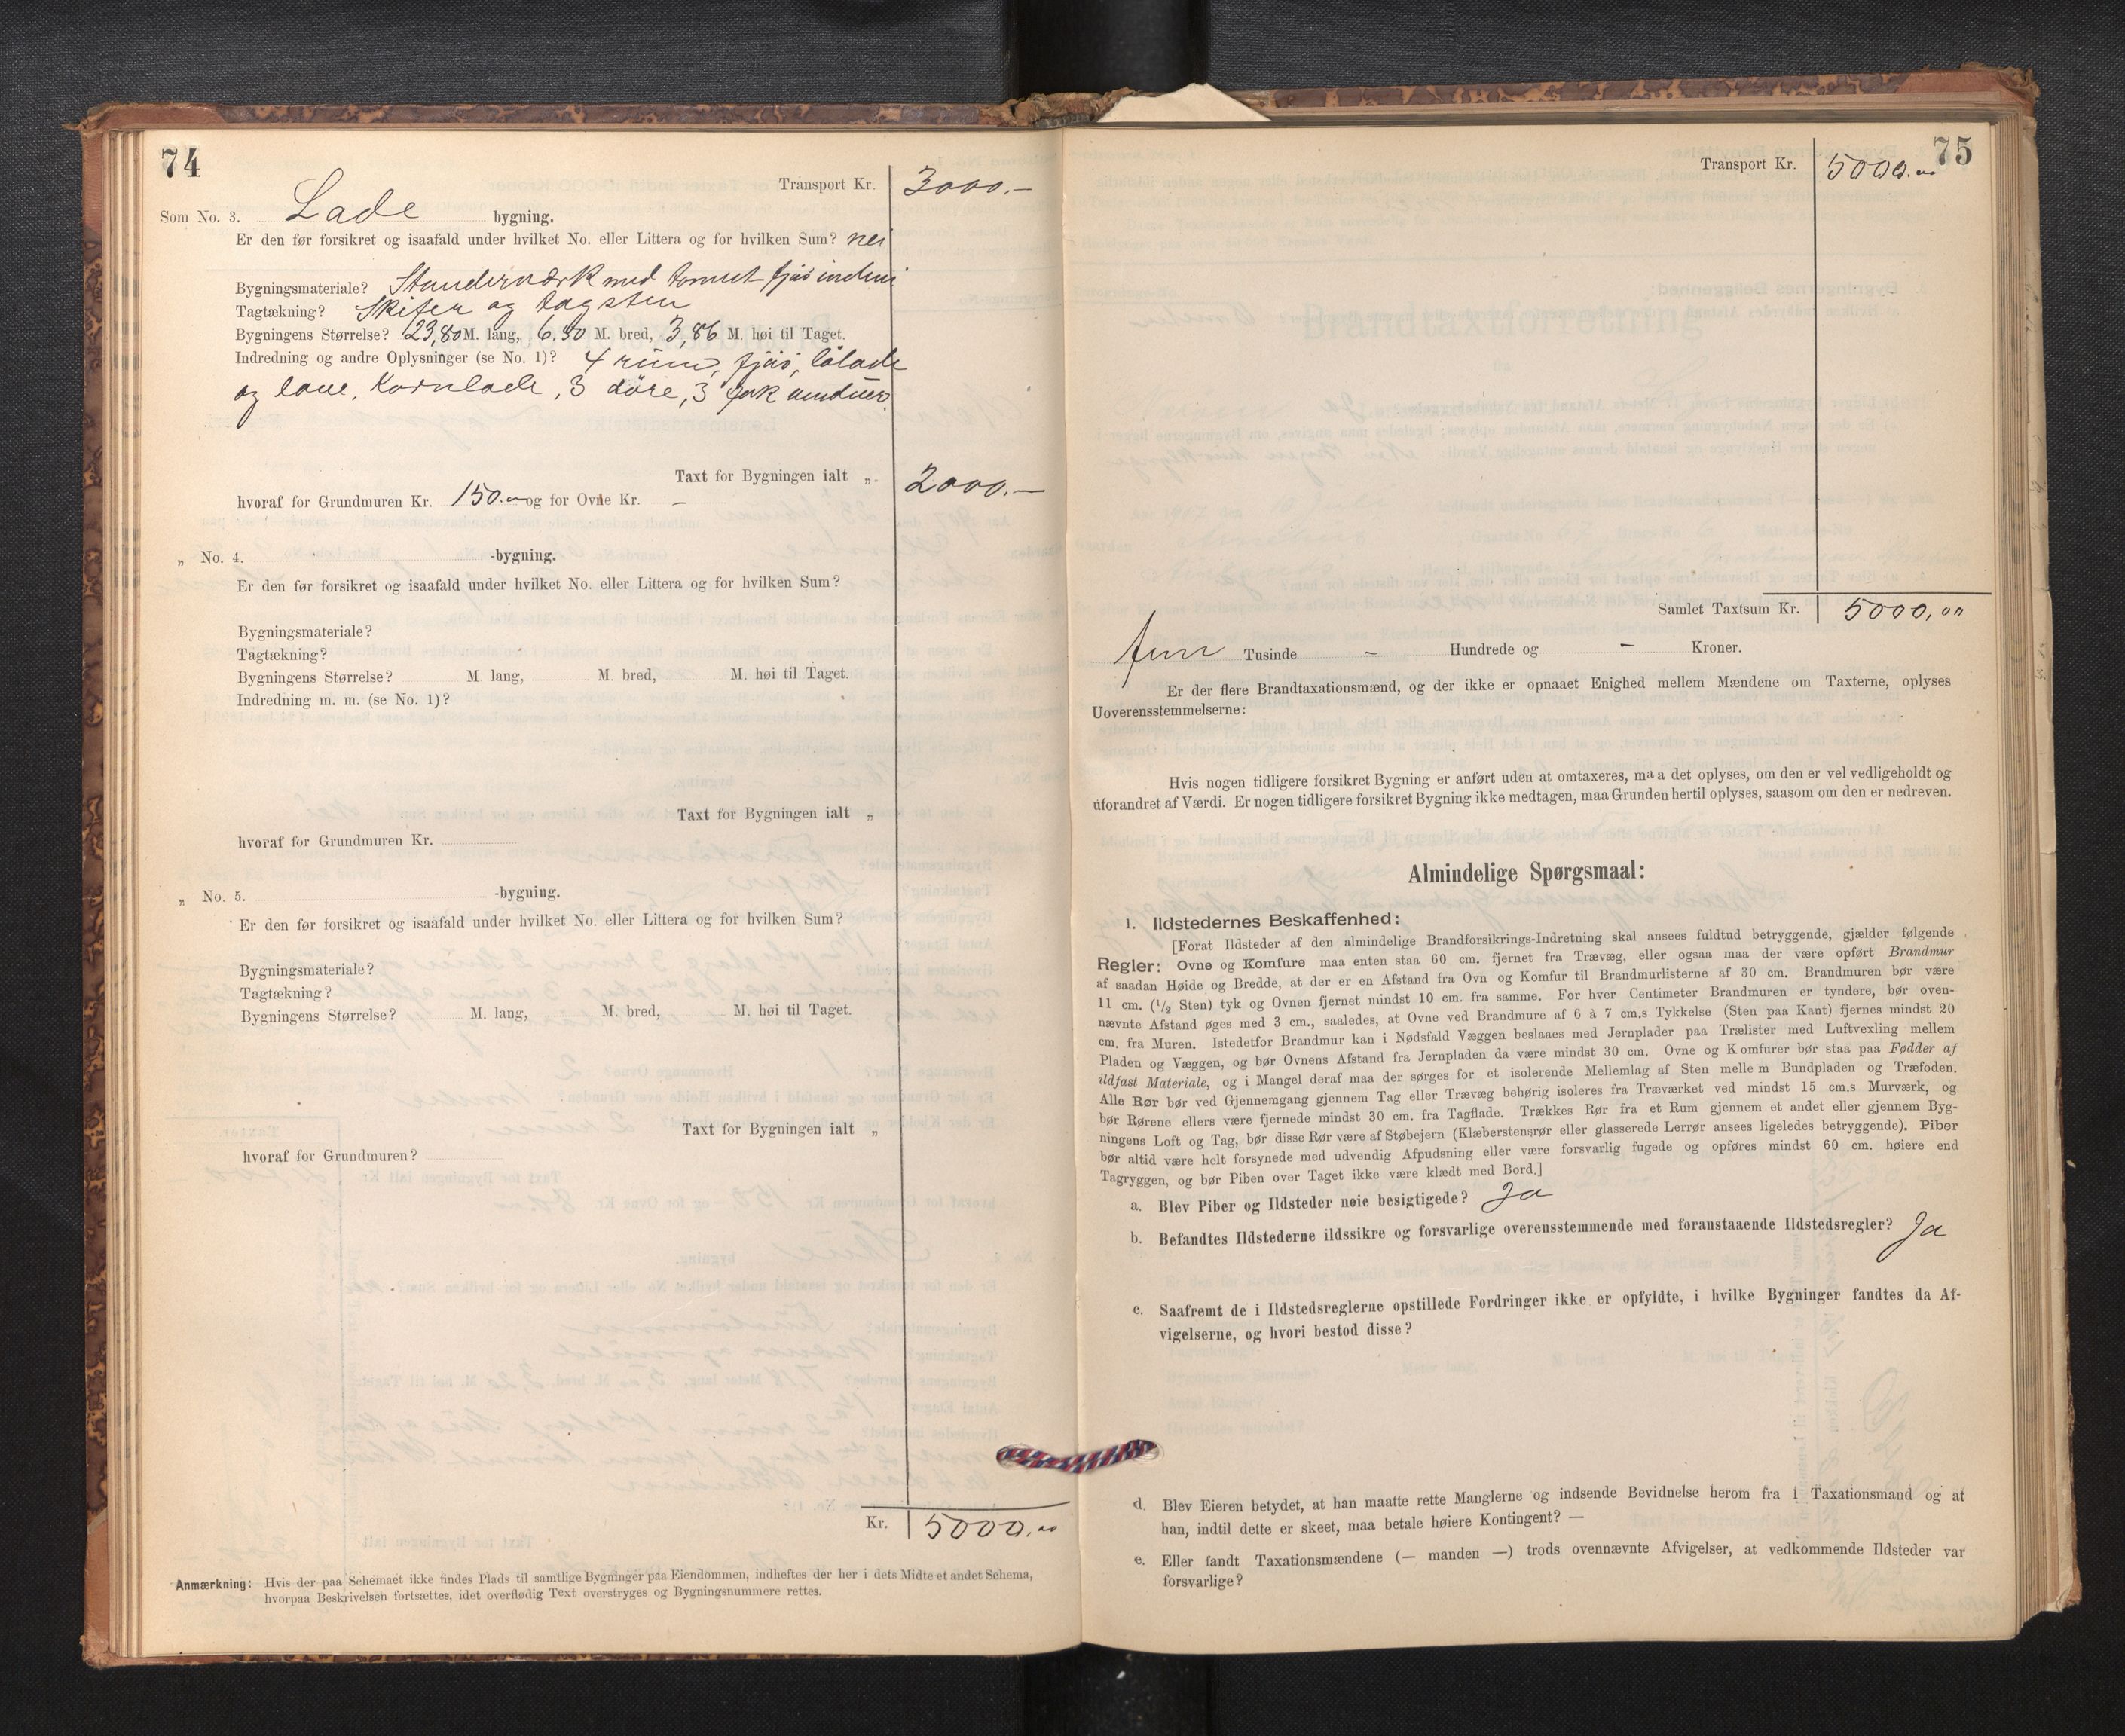 74
Transport Kr. 3000.—
Som No. 3. Lade bygning.
Er den før forsikret og isaafald under hvilket No. eller Littera og for hvilken Sum? nei
Bygningsmateriale? Stenderværk med tømret fjøs indeni
Tagtækning? Skifer og tagsten
Bygningens Størrelse? 23,80 M. lang, 6.50 M. bred, 3,86 M. høi til Taget.
Indredning og andre Oplysninger (se No. 1)? 4 rum, fjøs, lölade
og lave, Kornlade, 3 döre, 3 vinduer
Taxt for Bygningen ialt „ 2000.—
hvoraf for Grundmuren Kr. 150.oo og for Ovne Kr. —
„ No. 4. -bygning.
Er den før forsikret og isaafald under hvilket No. eller Littera og for hvilken Sum?
Bygningsmateriale?
Tagtækning?
Bygningens Størrelse? M. lang, M. bred, M. høi til Taget.
Indredning m. m. (se No. 1)?
Taxt for Bygningen ialt „
hvoraf for Grundmuren Kr.
„ No. 5. -bygning.
Er den før forsikret og isaafald under hvilket No. eller Littera og for hvilken Sum?
Bygningsmateriale?
Tagtækning?
Bygningens Størrelse? M. lang, M. bred, M. høi til Taget.
Taxt for Bygningen ialt „
hvoraf for Grundmuren?
Kr. 5000.oo
Anmærkning: Hvis der paa Schemaet ikke findes Plads til samtlige Bygninger paa Eiendommen, indheftes der her i dets Midte et andet Schema,
hvorpaa Beskrivelsen fortsættes, idet overflødig Text overstryges og Bygningsnummere rettes.
75
Transport Kr. 5000.oo
Samlet Taxtsum Kr. 5000,oo
fem Tusinde – Hundrede og – Kroner.
Er der flere Brandtaxationsmænd, og der ikke er opnaaet Enighed mellem Mændene om Taxterne, oplyses
Uoverensstemmelserne:
Hvis nogen tidligere forsikret Bygning er anført uden at omtaxeres, maa det oplyses, om den er vel vedligeholdt og
uforandret af Værdi. Er nogen tidligere forsikret Bygning ikke medtagen, maa Grunden hertil oplyses, saasom om den er nedreven.
Almindelige Spørgsmaal:
1. Ildstedernes Beskaffenhed:
[Forat Ildsteder af den almindelige Brandforsikrings-Indretning skal ansees fuldtud betryggende, gjælder følgende
Regler: Ovne og Komfure maa enten staa 60 cm. fjernet fra Trævæg, eller ogsaa maa der være opført Brandmur
af saadan Høide og Bredde, at der er en Afstand fra Ovn og Komfur til Brandmurlisterne af 30 cm. Brandmuren bør være
11 cm. (½ Sten) tyk og Ovnen fjernet mindst 10 cm. fra samme. For hver Centimeter Brandmuren er tyndere, bør oven-
nævnte Afstand øges med 3 cm., saaledes, at Ovne ved Brandmure af 6 à 7 cm.s Tykkelse (Sten paa Kant) fjernes mindst 20
cm. fra Muren. Istedetfor Brandmur kan i Nødsfald Væggen beslaaes med Jernplader paa Trælister med Luftvexling mellem
Pladen og Væggen, og bør Ovnens Afstand fra Jernpladen da være mindst 30 cm. Ovne og Komfurer bør staa paa Fødder af
ildfast Materiale, og i Mangel deraf maa der sørges for et isolerende Mellemlag af Sten mellem Bundpladen og Træfoden.
Alle Rør bør ved Gjennemgang gjennem Tag eller Trævæg behørig isoleres fra Træværket ved mindst 15 cm.s Murværk, og
bør Rørene ellers være fjernede mindst 30 cm. fra Tagflade. Trækkes Rør fra et Rum gjennem et andet eller gjennem Byg-
ningens Loft og Tag, bør disse Rør være af Støbejern (Klæberstensrør eller glasserede Lerrør ansees ligeledes betryggende). Piber
bør altid være helt forsynede med udvendig Afpudsning eller være forsvarlig fugede og opføres mindst 60 cm. høiere end
Tagryggen, og bør Piben over Taget ikke være klædt med Bord.]
a. Blev Piber og Ildsteder nøie besigtigede? Ja
b. Befandtes Ildstederne ildssikre og forsvarlige overensstemmende med foranstaaende Ildstedsregler? Ja
c. Saafremt de i Ildstedsreglerne opstillede Fordringer ikke er opfyldte, i hvilke Bygninger fandtes da Af-
vigelserne, og hvori bestod disse?
d. Blev Eieren betydet, at han maatte rette Manglerne og indsende Bevidnelse herom fra 1 Taxationsmand og at
han, indtil dette er skeet, maa betale høiere Kontingent? —
e. Eller fandt Taxationsmændene (— manden —) trods ovennævnte Afvigelser, at vedkommende Ildsteder var
forsvarlige?